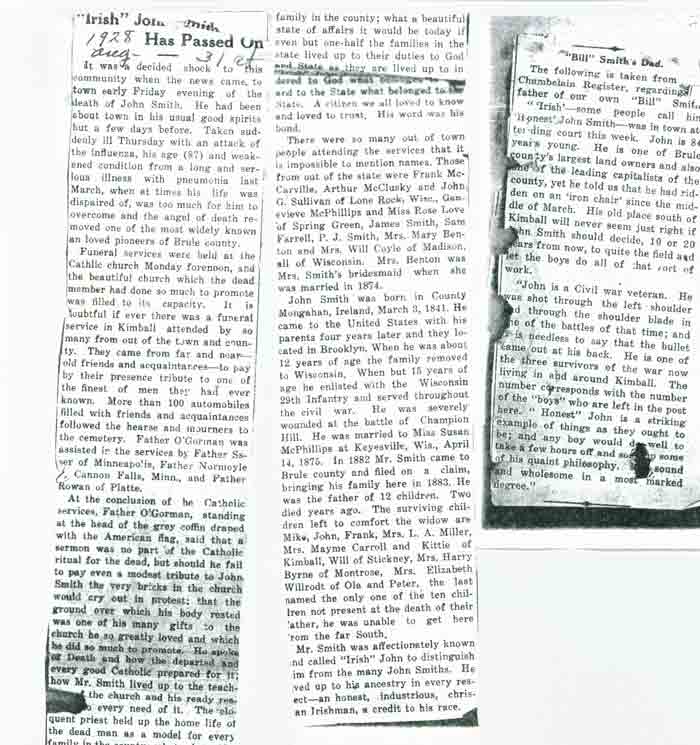 "Irish" John Smith
1928 Has Passed On
Aug 31st
It was a decided shock to this
community when the news came to
town early Friday evening of the
death of John Smith. He had been
about town in his usual good spirits
but a few days before. Taken sud-
denly ill Thursday with an attack of
the influenza, his age (87) and weak-
ened condition from a long and ser-
ious illness with pneumonia last
March, when at times his life was
dispaired of, was too much for him to
overcome and the angel of death re-
moved one of the most widely known
an loved pioneers of Brule county.
Funeral services were held at the
Cathlic church Monday forenoon, and
the beautiful church which the dead
member had done so much to promote
was filled to its capacity. It is
doubtful if ever there was a funeral
service in Kimball attended by so
many from out of the town and coun-
ty. They came from far and near—
old friends and acquaintances—to pay
by their presence tribute to one of
the finest of men they had ever
known. More than 100 automobiles
filled with friends and acquaintances
followed the hearse and mourners to
the cemetery. Father O'Gorman was
assisted in the services by Father Ss-
ser of Minneapolis, Father Normoyle
Cannon Falls, Minn., and Father
Rowan of Platte.
At the conclusion of he Catholic
services, Father O'Gorman, standing
at the head of the grey coffin draped
with the American flag, said that a
sermon was no part of the Catholic
ritual for the dead, but should he fail
to pay even a modest tribute to John
Smith the very bricks in the church
would cry out in protest; that the
ground over which his body rested
was one of his many gifts to the
church he so greatly loved and which
he did so much to promote. He spoke
of Death and how the departed and
every good Catholic prepared for it;
how Mr. Smith lived up to the teach-
the church and his ready res-
every need of it. The elo-
quent priest held up the home life of
the dead man as a model for every
family in the
family in the county; what a beautiful
state of affairs it would be today if
even but one-half the families in the
state lived up to their duties to God
and State as they are lived up to in
dered to God what belonged
and to the State what belonged to the
State. A citizen we all loved to know
and loved to trust. His word was his
bond.
There were so many out of town
people attending the services that it
is impossible to mention names. Those
from out of the state were Frank Mc-
Carville, Arthur McClusky and John
G. Sullivan of Lone Rock, Wisc., Gen-
evieve McPhillips and Miss Rose Love
of Spring Green, James Smith, Sam
Farrell, P. J. Smith, Mrs. Mary Ben-
ton and Mrs. Will Coyle of Madison,
all of Wisconsin. Mrs. Benton was
Mrs. Smith's bridesmaid when she
was married in 1874.
John Smith was born in County
Mongahan, Ireland, March 3, 1841. He
came to the United States with his
parents four years later and they lo-
cated in Brooklyn. When he was about
12 years of age the family removed
to Wisconsin. When but 15 years of
age he enlisted with the Wisconsin
29th Infantry and served throughout
the civil war. He was severely
wounded at the battle of Champion
Hill. He was married to Miss Susan
McPhillips at Keyesville, Wis., April
14, 1875. In 1882 Mr. Smith came to
Brule county and filed on a claim,
bringing his family here in 1883. He
was the father of 12 children. Two
died years ago. The surviving chil-
dren left to comfort the widow are
Mike, John, Frank, Mrs. L. A. Miller,
Mrs. Mayme Carroll and Kittie of
Kimball, Will of Stickney, Mrs. Harry
Byrne of Montrose, Mrs. Elizabeth
Willrodt of Ola and Peter, the last
named the only one of the ten chil-
dren not present at the death of their
father, he was unable to get here
from the far South.
Mr. Smith was affectionately known
and called "Irish" John to distinguish
him from the many John Smiths. He
lived up to his ancestry in every res-
pect—an honest, industrious, chris-
an Irishman, a credit to his race.
"Bill" Smith's Dad.
The following is taken from
Chambelain Register, regarding
father of our own "Bill" Smith
"'Irish'—some people call him
'Honest' John Smith—was in town at-
tending court this week. John is 84
years young. He is one of Brule
county's largest land owners and also
one of the leading capitalists of the
county, yet he told us that he had rid-
den on an 'iron chair' since the mid-
dle of March. His old place south of
Kimball will never seem just right if
John Smith should decide, 10 or 20
years from now, to quite the field and
let the boys do all of that sort of
work.
"John is a Civil war veteran. He
was shot through the left shoulder
and through the shoulder blade in
one of the battles of that time; and
is needless to say that the bullet
came out at his back. He is one of
the three survivors of the war now
living in and around Kimball. The
number corresponds with the number
of the "boys" who are left in the post
here. "Honest" John is a striking
example of things as they ought to
be; and any boy would do well to
take a few hours off and some
of his quaint philosophy. sound
and wholesome in a most marked
degree."